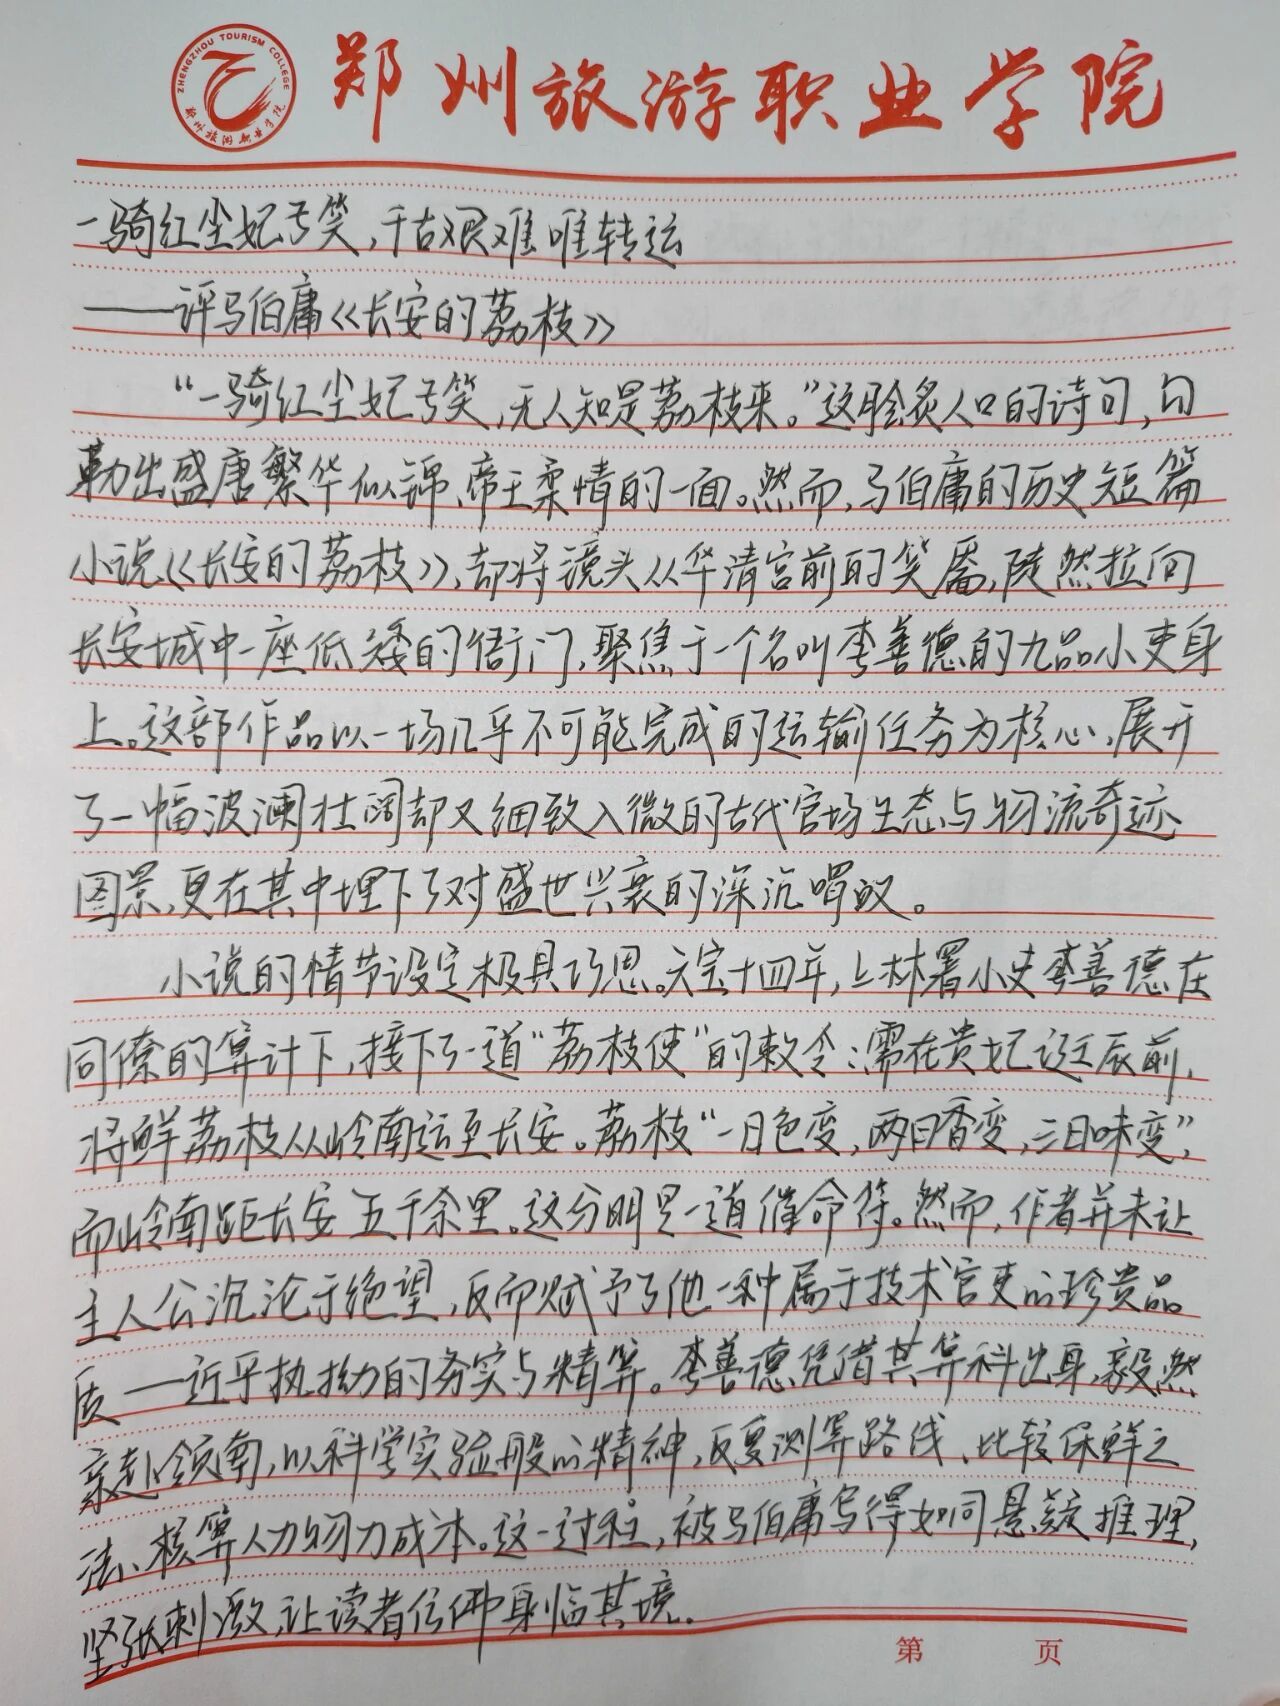 ZHENGZHOU TOURISM COLLEGE
郑州旅游职业学院
郑州旅游职业学院
一骑红尘妃子笑,千古艰难唯转运
——评马伯庸《长安的荔枝》
“一骑红尘妃子笑,无人知是荔枝来。”这脍炙人口的诗句,勾
勒出盛唐繁华似锦、帝王柔情的一面。然而,马伯庸的历史短篇
小说《长安的荔枝》,却将镜头从华清宫前的笑靥,陡然拉向
长安城中一座低矮的衙门,聚焦于一个名叫李善德的九品小吏身
上。这部作品以一场几乎不可能完成的运输任务为核心,展开
了一幅波澜壮阔却又细致入微的古代官场生态与物流奇迹
图景,更在其中埋下了对盛世兴衰的深沉喟叹。
小说的情节设定极具巧思。天宝十四年,上林署小吏李善德在
同僚的算计下,接下了一道“荔枝使”的敕令:需在贵妃诞辰前,
将鲜荔枝从岭南运至长安。荔枝“一日色变,两日香变,三日味变”,
而岭南距长安五千余里。这分明是一道催命符。然而,作者并未让
主人公沉沦于绝望,反而赋予了他一种属于技术官吏的珍贵品
质——近乎执拗的务实与精算。李善德凭借其算科出身,毅然
亲赴岭南,以科学实验般的精神,反复测算路线、比较保鲜之
法、核算人力物力成本。这一过程,被马伯庸写得如同悬疑推理,
紧张刺激,让读者仿佛身临其境。
第 页